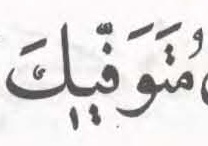 مُتَوَفِّيكَ